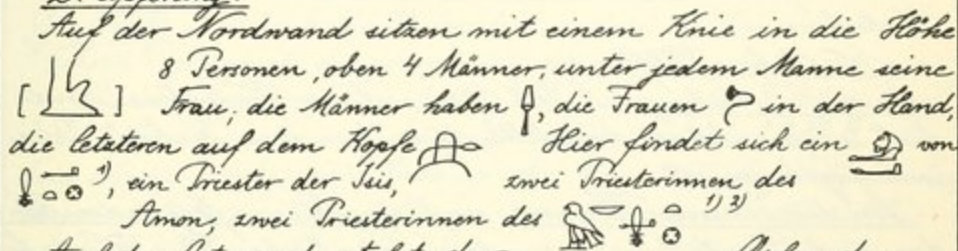 Auf der Nordwand sitzen mit einem Knie in die Höhe
8 Personen, oben 4 Männer, unter jedem Manne seine
[ ] Frau; die Männer haben , die Frauen in der Hand,
die letzteren auf dem Kopfe Hier findet sich ein von
1), ein Priester der Isis, zwei Priesterinnen des
Amon, zwei Priesterinnen des 1) 2)